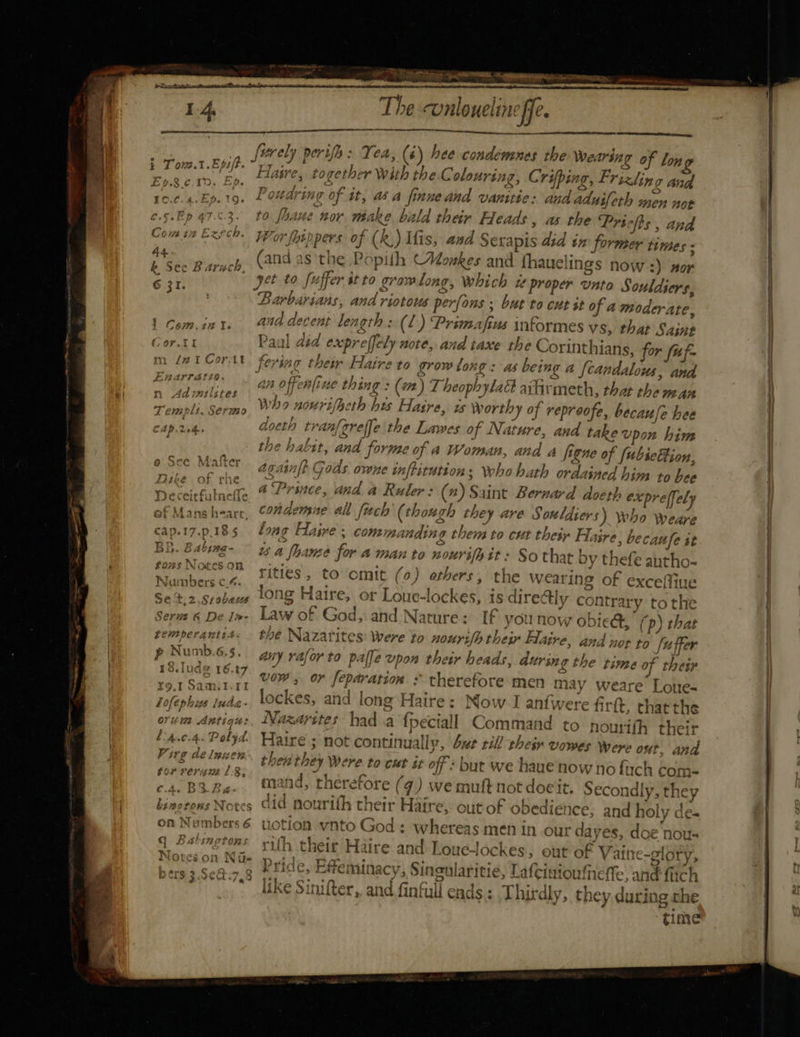 14
The vnlouelinesse.
surely perish: Yea, (i) hee condemnes the Wearing of long
Haire, together with the Colouring, Crisping, Frizling and
Poudring of it, as a sinne and vanitie: and aduiseth men not
to shaue nor make bald their Heads, as the Priests, and
Worshippers of (k) Isis, and Serapis did in former times;
(and as the Popish Monkes and shauelings now:) nor
yet to suffer it to grow long, which is proper vnto Souldiers,
Barbarians, and riotous persons; but to cut it of a moderate,
and decent length: (l) Primasius informes vs, that Saint
Paul did expressely note, and taxe the Corinthians, for suf-
fering their Haire to grow long: as being a scandalous, and
an offensiue thing: (m) Theophylact affirmeth, that the man
Who nourisheth his Haire, is Worthy of reproofe, because hee
doeth transgresse the Lawes of Nature, and take vpon him
the habit, and forme of a Woman, and a signe of subiection,
against Gods owne institution; who hath ordained him to bee
a Prince, and a Ruler: (n) Saint Bernard doeth expressely
condemne all such (though they are Souldiers) who weare
long Haire; commanding them to cut their Haire, because it
is a shame for a man to nourish it: So that by these autho-
rities, to omit (o) others, the wearing of excessiue
long Haire, or Loue-lockes, is directly contrary to the
Law of God, and Nature: If you now obiect, (p) that
the Nazarites Were to nourish their Haire, and not to suffer
any rasor to passe vpon their heads, during the time of their
vow, or separation: therefore men may weare Loue-
lockes, and long Haire: Now I answere first, that the
Nazarites had a speciall Command to nourish their
Haire; not continually, but till their vowes Were out, and
then they Were to cut it off: but we haue now no such com-
mand, therefore (q) we must not doe it. Secondly, they
did nourish their Haire, out of obedience, and holy de-
uotion vnto God: whereas men in our dayes, doe nou-
rish their Haire and Loue-lockes, out of Vaine-glory,
Pride, Effeminacy, Singularitie, Lasciuiousnesse, and such
like Sinister, and sinfull ends: Thirdly, they during the
time
i Tom.1.Epist.
Ep.8.c.10. Ep.
10.c.4.Ep.19.
c.5.Ep 47.c.3.
Com in Ezech.
44.
k See Baruch,
6 31.
l Com.in 1.
Cor.11
m In 1 Cor.11
Enarratio.
n Ad milites
Templi. Sermo
cap.2.4.
o See Master
Dike of the
Deceitfulnesse
of Mans heart,
cap.17.p.185
BB. Babing-
tons Notes on
Numbers c.6.
Sect.2.Stobaeus
Serm 6 De In-
temperantia.
p Numb.6.5.
18.Iudg 16.17
19.1 Sam.1.11
Iosephus Iuda-
orum Antiqu:
l.4.c.4. Polyd.
Virg de Inuen-
tor rerum l.8.
c.4. BB. Ba-
bingtons Notes
on Numbers 6
q Babingtons
Notes on Nū-
bers 3.Sect.7,8